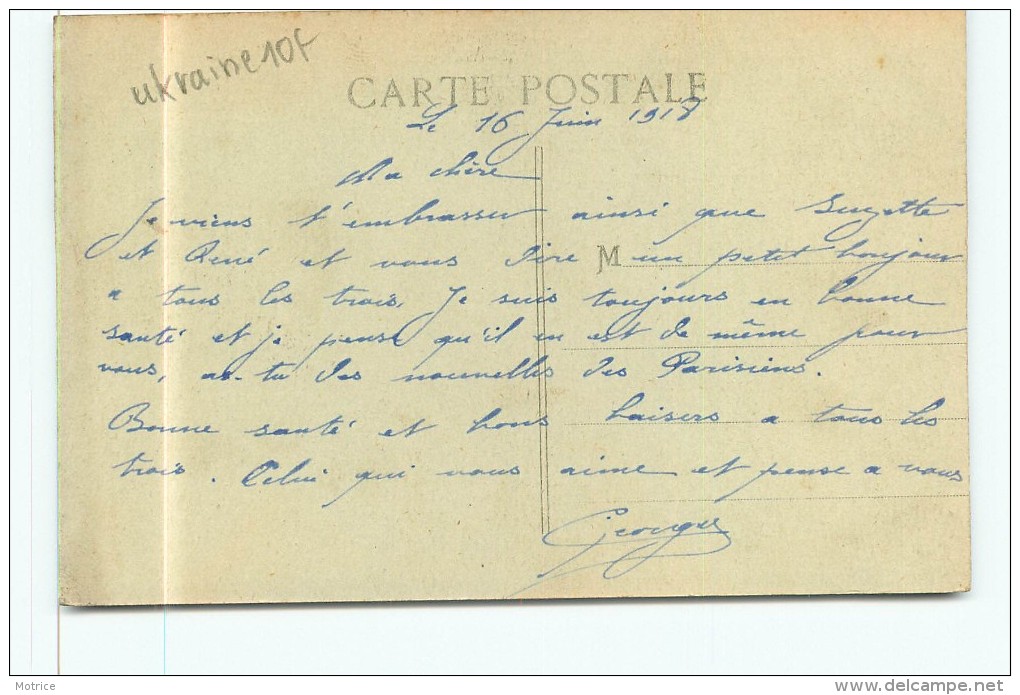 ukraine 10f
CARTE POSTALE
Le 16 Juin 1918
Ma chère
Je viens t'embrasser ainsi que Suzette
et René et vous dire un petit bonjour
M
a tous les trois. Je suis toujours en bonne
santé et je pense qu'il en est de même pour
vous, as-tu des nouvelles des Parisiens.
Bonne santé et bons baisers a tous les
trois. Celui qui vous aime et pense a vous
Georges
Motrice
www.delcampe.net